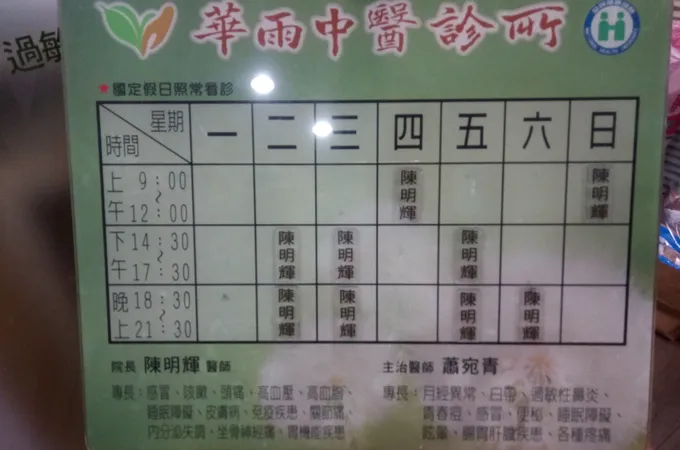 過敏
華雨中醫診所
★國定假日照常看診
星期 時間 一 二 三 四 五 六 日
上午 9:00~12:00 陳明輝 陳明輝
下午 14:30~17:30 陳明輝 陳明輝 陳明輝
晚上 18:30~21:30 陳明輝 陳明輝 陳明輝 陳明輝
院長 陳明輝 醫師
專長:感冒、咳嗽、頭痛、高血壓、高血脂、
睡眠障礙、皮膚病、免疫疾患、關節痛、
內分泌失調、坐骨神經痛、胃機能疾患
主治醫師 蕭宛青
專長:月經異常、白帶、過敏性鼻炎、
青春痘、感冒、便秘、睡眠障礙、
眩暈、腸胃肝膽疾患、各種疼痛